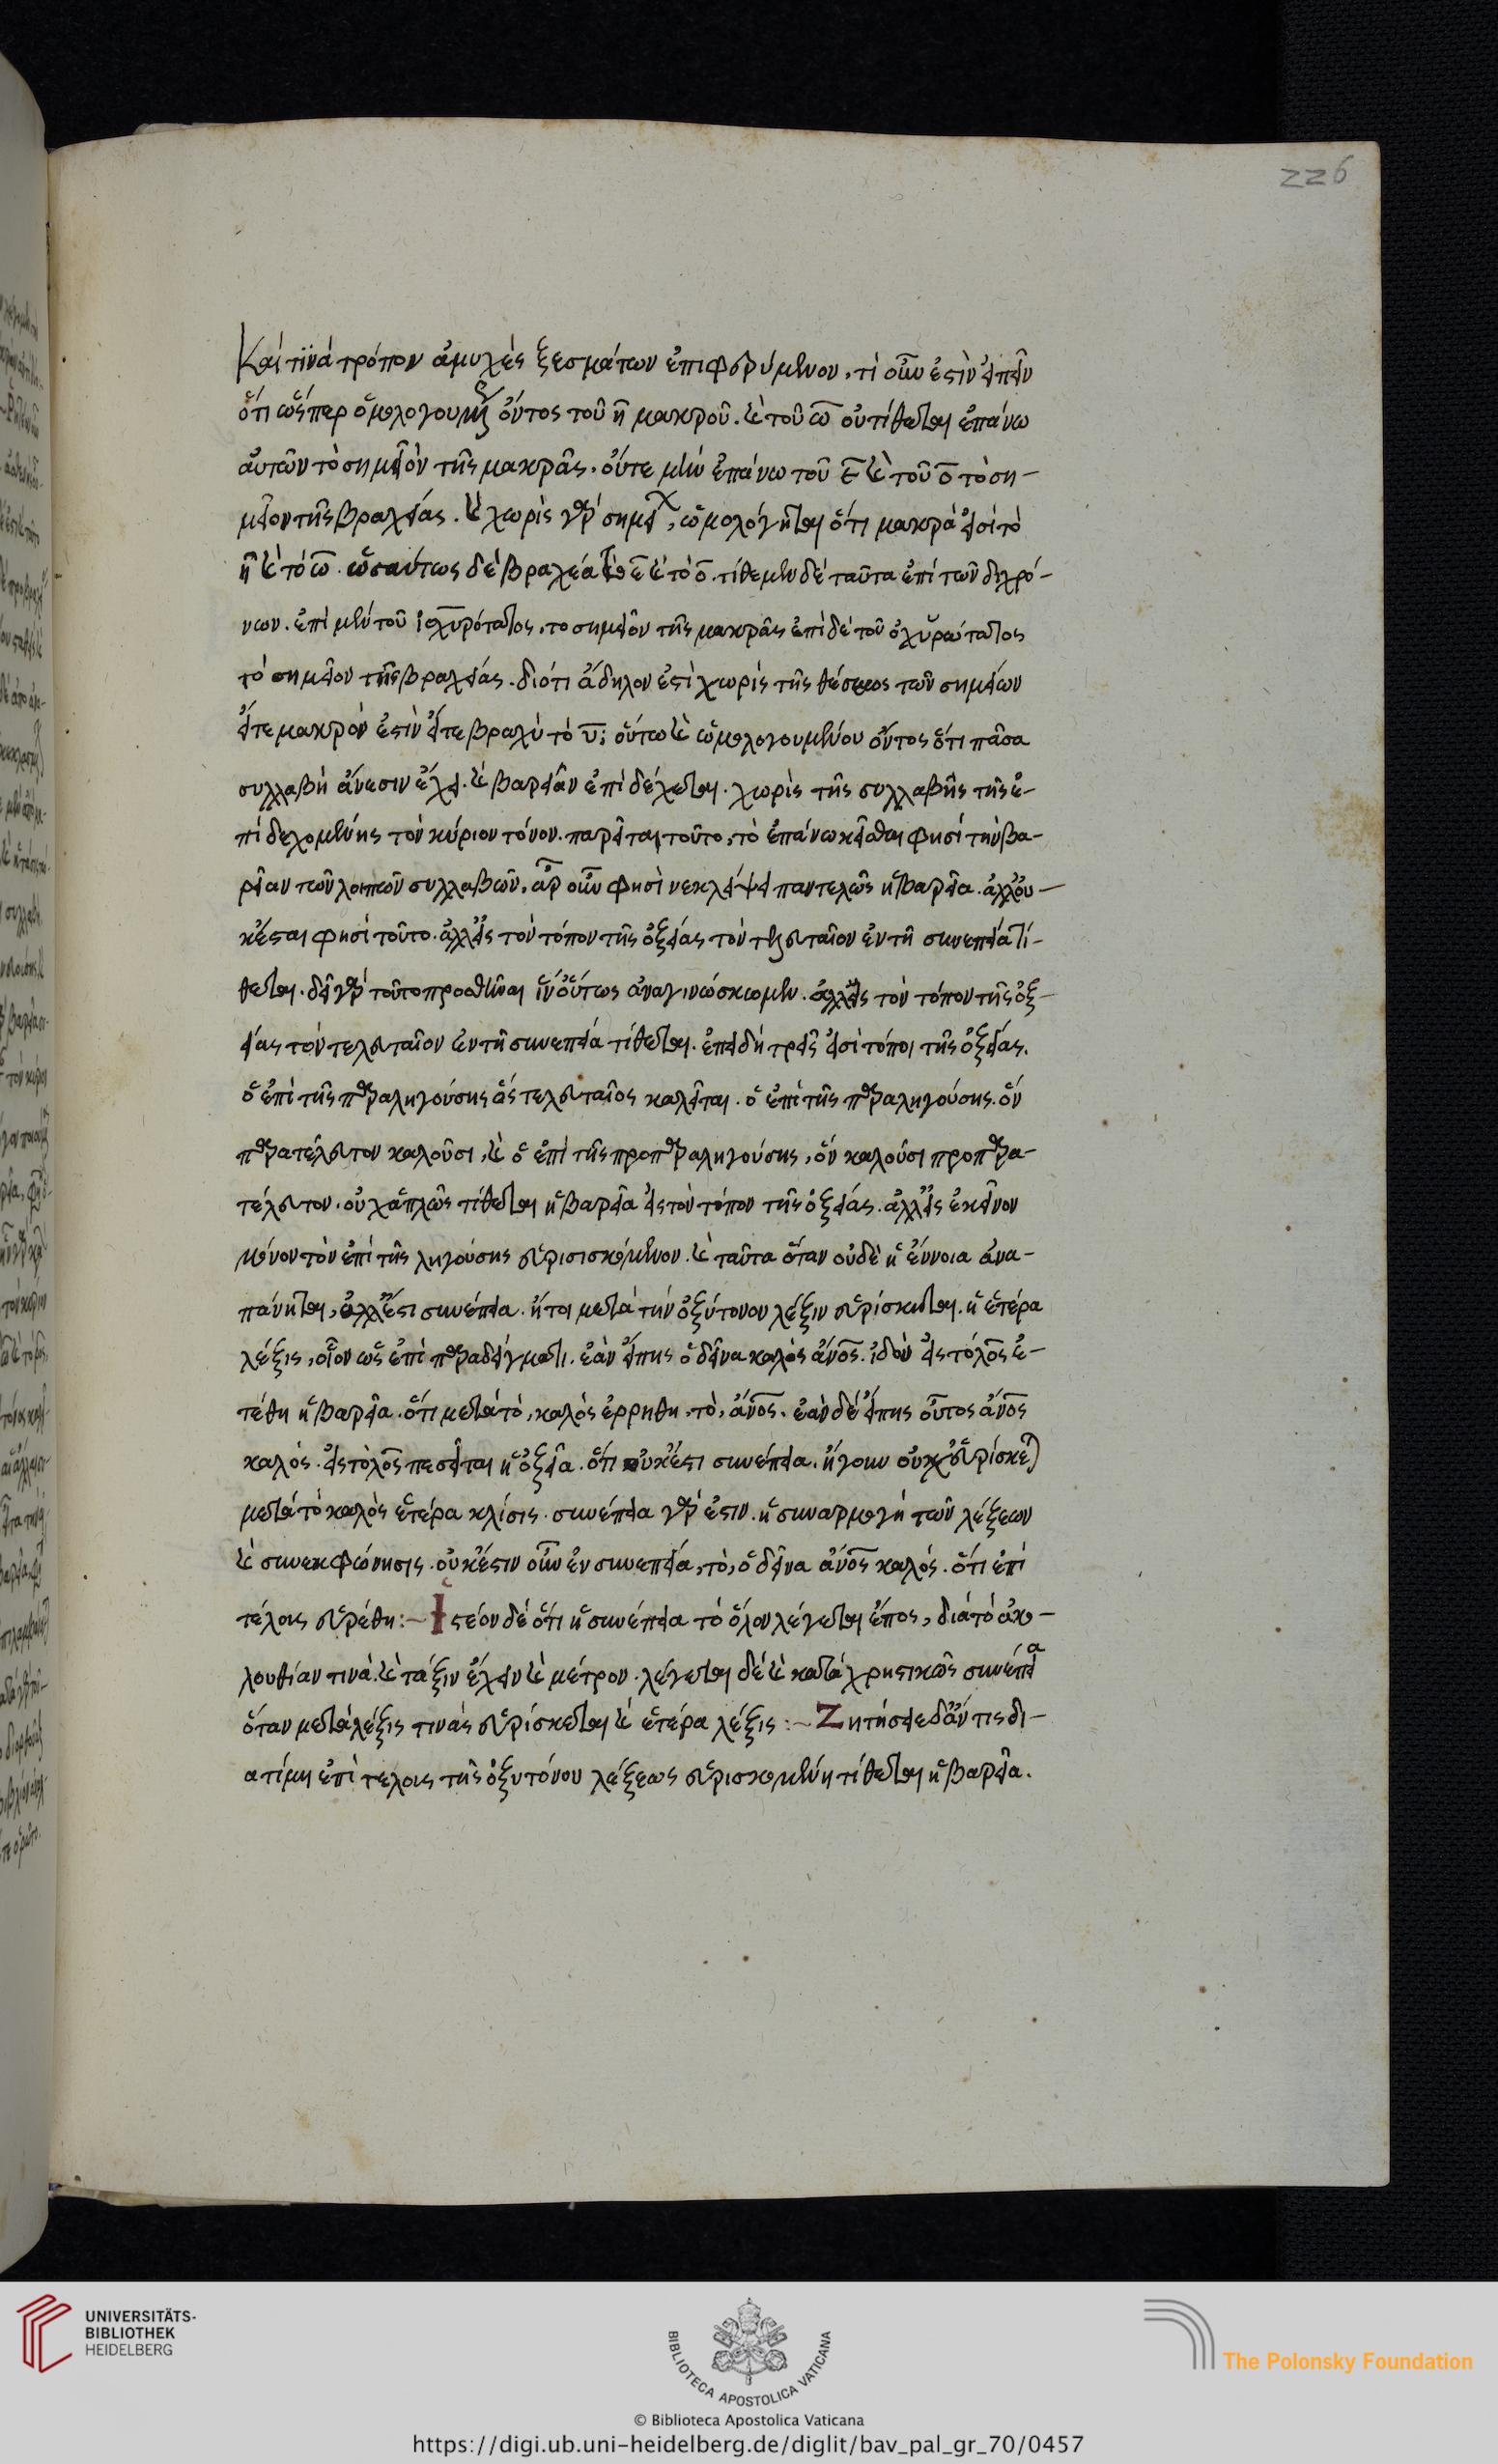 226
Καί τινὰ τρόπον ἀμυχὲς ξεσμάτων ἐπιφερόμενον, τί οὖν ἐστὶν εἰπεῖν
ὅτι ὥσπερ ὁμολογουμένου ὄντος τοῦ η μακροῦ. καὶ τοῦ ω οὐ τίθεται ἐπάνω
αὐτῶν τὸ σημεῖον τῆς μακρᾶς. οὔτε μὴν ἐπάνω τοῦ ε καὶ τοῦ ο τὸ ση-
μεῖον τῆς βραχείας. καὶ χωρὶς γὰρ σημεί, ὡμολόγηται ὅτι μακρὰ εἰσὶ τὸ
η καὶ τὸ ω. ὡσαύτως δὲ βραχέα τὸ ε καὶ τὸ ο. τίθεμεν δὲ ταῦτα ἐπὶ τῶν διχρό-
νων. ἐπὶ μὲν τοῦ ἰσχυρότατος, το σημεῖον τῆς μακρᾶς ἐπὶ δὲ τοῦ ὀχυρώτατος
τὸ σημεῖον τῆς βραχείας. διότι ἄδηλον ἐστὶ χωρὶς τῆς θέσεως τῶν σημείων
εἴτε μακρὸν ἐστὶν εἴτε βραχὺ τὸ υ; οὕτω καὶ ὡμολογουμένου ὄντος ὅτι πᾶσα
συλλαβὴ ἄνεσιν ἔχει. καὶ βαρεῖαν ἐπιδέχεται. χωρὶς τῆς συλλαβῆς τῆς ἐ-
πιδεχομένης τὸν κύριον τόνον. παρεῖται τοῦτο, τὸ ἐπάνω κεῖσθαι φησὶ τὴν βα-
ρεῖαν τῶν λοιπῶν συλλαβῶν, ἆρ οὖν φησὶν ἐκλείψει παντελῶς ἡ βαρεῖα. ἀλλ' οὐ-
κ ἔσται φησὶ τοῦτο. ἀλλ' εἰς τὸν τόπον τῆς ὀξείας τὸν τελευταῖον ἐν τῆ συνεπεία τί-
θεται. δεῖ γὰρ τοῦτο προσθῆναι ἵν' οὕτως ἀναγινώσκωμεν. ἀλλ' εἰς τὸν τόπον τῆς ὀξ-
είας τὸν τελευταῖον ἐν τῆ συνεπεία τίθεται. ἐπειδὴ τρεῖς εἰσὶ τόποι τῆς ὀξείας.
ὁ ἐπὶ τῆς παραληγούσης ὅς τελευταῖος καλεῖται. ὁ ἐπὶ τῆς παραληγούσης. ὅν
παρατέλευτον καλοῦσι, καὶ ὁ ἐπὶ τῆς προπαραληγούσης, ὅν καλούσι προπαρα-
τέλευτον. οὐχ ἁπλῶς τίθεται ἡ βαρεῖα εἰς τὸν τόπον τῆς ὀξείας. ἀλλ' εἰς ἐκεῖνον
μόνον τὸν ἐπὶ τῆς ληγούσης εὑρισισκόμενον. καὶ ταῦτα ὅταν οὐδὲ ἡ ἔννοια ἀνα-
πάυηται, ἀλλ' ἔστι συνέπεια. ἤτοι μετὰ τὴν ὀξύτονον λέξιν εὑρίσκηται. ἡ ἑτέρα
λέξις, οἷον ὡς ἐπὶ παραδείγματι. ἐὰν εἴπης ὁ δεῖνα καλὸς ἄνος. ἰδοὺ εἰς τὸ λος ἐ-
τέθη ἡ βαρεῖα. ὅτι μετὰ τὸ, καλὸς ἐρρηθη, τὸ, ἄνος. ἐὰν δὲ εἴπης οὗτος ἄνος
καλὸς. εἰς τὸ λος πεσεῖται ἡ ὀξεῖα. ὅτι οὐκ ἔστι συνέπεια. ἤγουν οὐχ εὑρίσκεται
μετὰ τὸ καλὸς ἑτέρα κλίσις. συνέπεια γὰρ ἐστιν. ἡ συναρμογὴ τῶν λέξεων
καὶ συνεκφώνησις. οὐκ ἔστιν οὖν ἐν συνεπεία, τὸ, ὁ δεῖνα ἄνος καλός. ὅτι ἐπὶ
τέλοις εὑρέθη:~ Ἰστέον δὲ ὅτι ἡ συνέπεια τὸ ὅλον λέγεται ἔπος, διὰ τὸ ἀκο-
λουθίαν τινὰ. καὶ τάξιν ἔχειν καὶ μέτρον. λέγεται δὲ καὶ καταχρηστικῶς συνέπεια
ὅταν μετὰ λέξις τινὰς εὑρίσκεται καὶ ἑτέρα λέξις:~ Ζητήσειε δ' ἄν τις δι-
ατί μη ἐπὶ τελοις τῆς ὀξυτόνου λέξεως εὑρισκομένη τίθεται ἡ βαρεῖα.
UNIVERSITÄTS-
BIBLIOTHEK
HEIDELBERG
BIBLIOTECA APOSTOLICA VATICANA
The Polonsky Foundation
© Biblioteca Apostolica Vaticana
https://digi.ub.uni-heidelberg.de/diglit/bav_pal_gr_70/0457